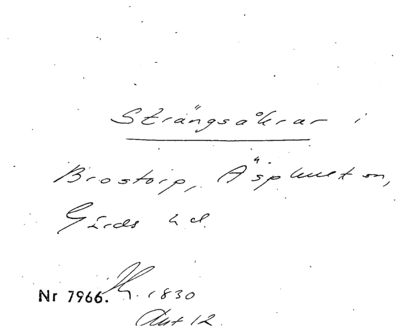 Strängsåkrar i
Brostorp, Äsphult sn,
Gärds hd.
Nr 7966. 1830
Akt 12.